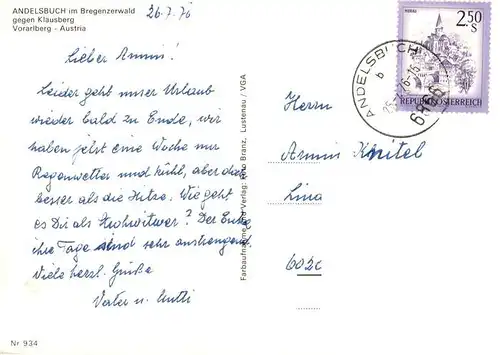 ANDELSBUCH im Bregenzerwald
gegen Klausberg
Vorarlberg - Austria
26.7.76
Lieber Armin!
Leider geht unser Urlaub
wieder bald zu Ende, wir
haben jetzt eine Woche nur
Regenwetter und kühl, aber das
besser als die Hitze. Wie geht
es Dir als Strohwitwer? Der
ihre Tage sind sehr anstrengend
Viele herzl. Grüße
Vater u. Mutti
Nr 934
Farbaufnahme und Verlag: Branz, Lustenau / VGA
MURAU
2.50
S
REPUBLIK ÖSTERREICH
ANDELSBUCH
b
6
Herrn
Armin Knitel
Linz
6020